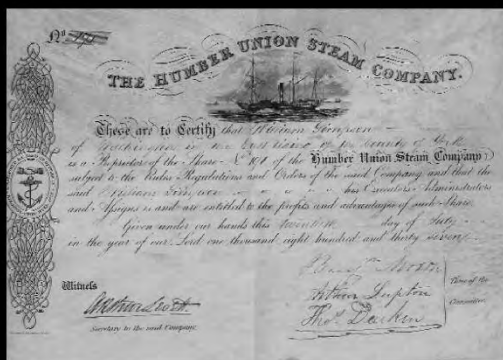 No
THE HUMBER UNION STEAM COMPANY.
These are to Certify that William Simpson
of in the East Riding of the County of York
is a Proprietor of the Share No 191 of the Humber Union Steam Company
subject to the Rules Regulations and Orders of the said Company and that the
said William Simpson his Executors Administrators
and Assigns is and are entitled to the profits and advantages of such Share.
Given under our hands this day of July
in the year of our Lord one thousand eight hundred and thirty seven
Witness
Arthur Scott
Secretary to the said Company.
Arthur Lupton
Thos Darkin
Three of the
Committee